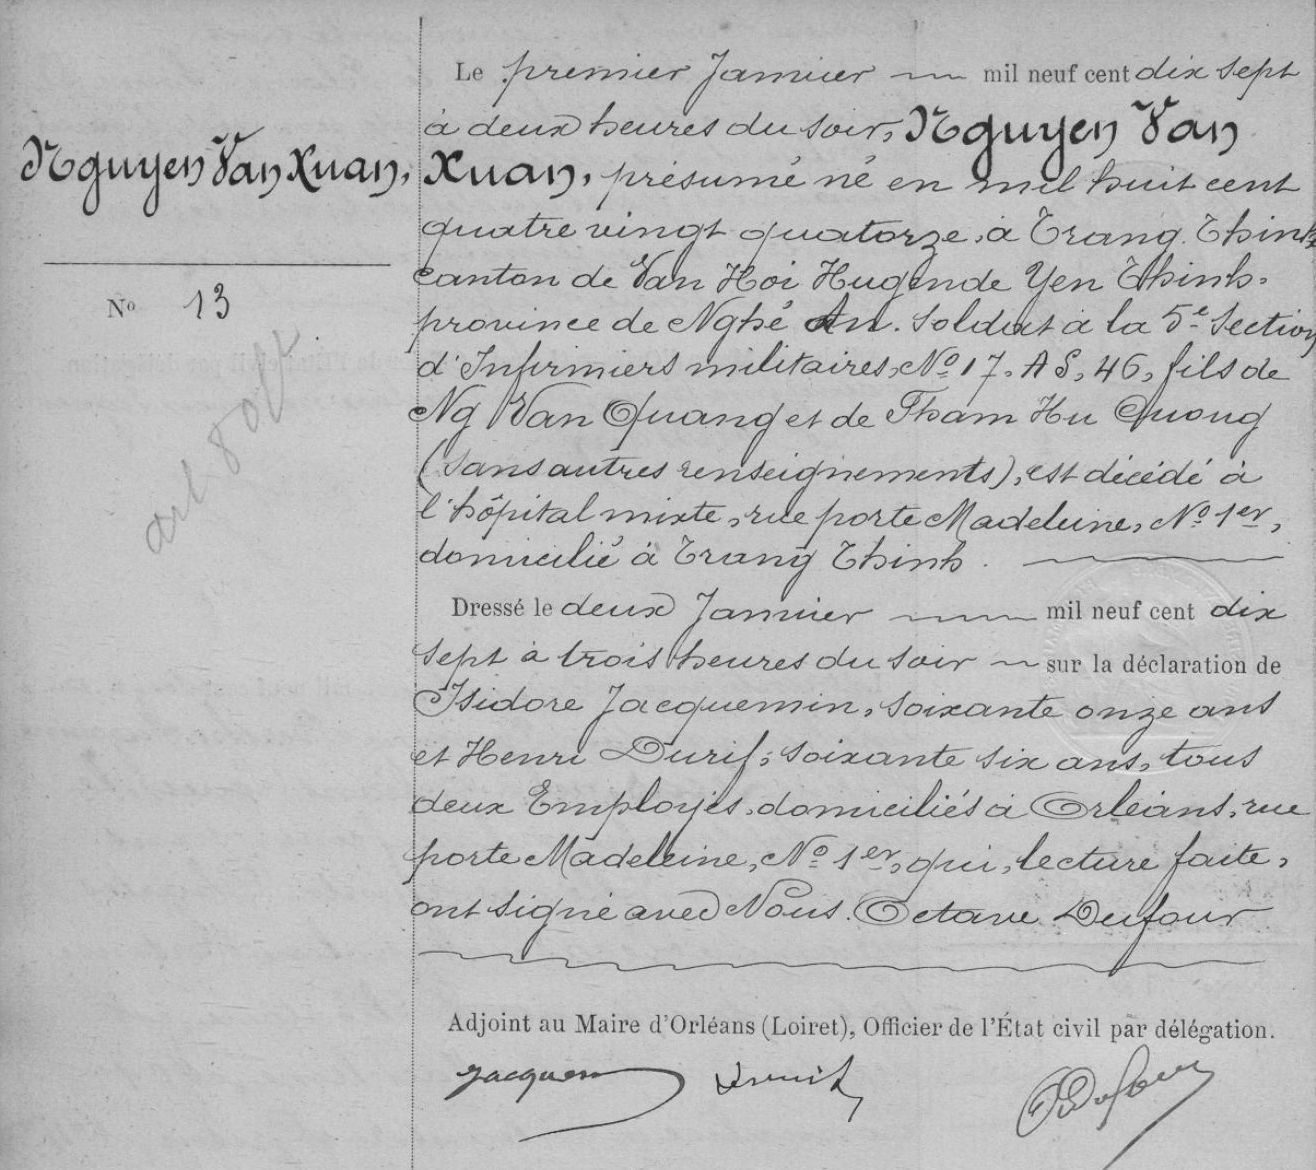 Le premier Janvier mil neuf cent dix sept
à deux heures du soir, Nguyen Van
Nguyen Van Xuan,
Xuan, présumé né en mil huit cent
quatre vingt quatorze, à Trang Thinh
canton de Van Hoi Hugende Yen Thinh,
N° 13
province de Nghé An. Soldat à la 5e Section
d'Infirmiers militaires, N° 17. A S, 46, fils de
Ng Van Quang et de Tham Hu Quong
(sans autres renseignements), est décédé à
l'hôpital mixte, rue porte Madeleine, N° 1er,
domicilié à Trang Thinh.
Dressé le deux Janvier mil neuf cent dix
sept à trois heures du soir sur la déclaration de
Isidore Jacquemin, soixante onze ans
et Henri Durif, soixante six ans, tous
deux Employés, domiciliés à Orléans, rue
porte Madeleine, N° 1er, qui, lecture faite,
ont signé avec Nous. Octave Dufour
Adjoint au Maire d'Orléans (Loiret), Officier de l'État civil par délégation.